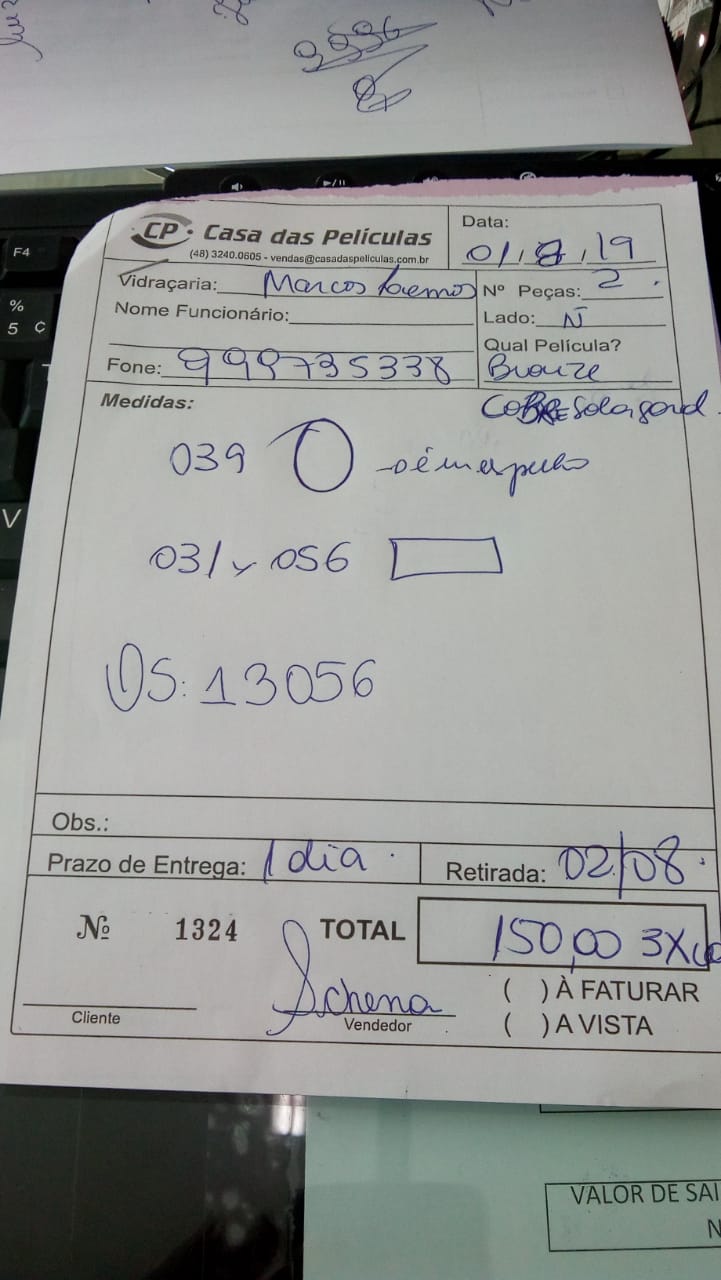 9996
F4
%
5 C
V
CP Casa das Películas
(48) 3240.0605 - vendas@casadaspeliculas.com.br
Data: 01/8/19
Vidraçaria: Marcos Lemos
Nº Peças: 2
Nome Funcionário:
Lado: N
Qual Película?
Fone: 999735338
Bronze
Medidas:
COBRE
039
031 x 056
OS: 13056
Obs.:
Prazo de Entrega: 1 dia
Retirada: 02/08
Nº 1324
TOTAL 150,00 3X
Schena
( ) À FATURAR
Cliente
Vendedor
( ) A VISTA
VALOR DE SAI
N